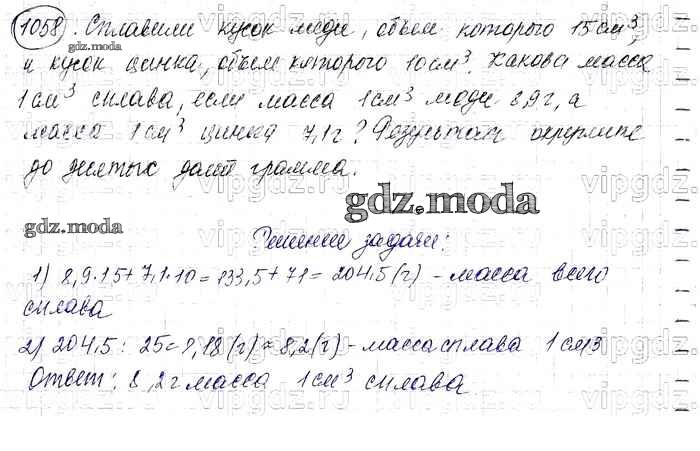 1058. Сплавили кусок меди, объем которого 15 см³,
gdz.moda
и кусок цинка, объем которого 10 см³. Какова масса
1 см³ сплава, если масса 1 см³ меди 8,9 г, а
масса 1 см³ цинка 7,1 г? Результат округлите
до десятых долей грамма.
gdz.moda
gdz.moda
Решение задачи:
1) 8,9·15+7,1·10=133,5+71=204,5(г) - масса всего
сплава
2) 204,5:25=8,18(г)≈8,2(г) - масса сплава 1 см3
Ответ: 8,2г масса 1 см³ сплава
vipgdz.ru